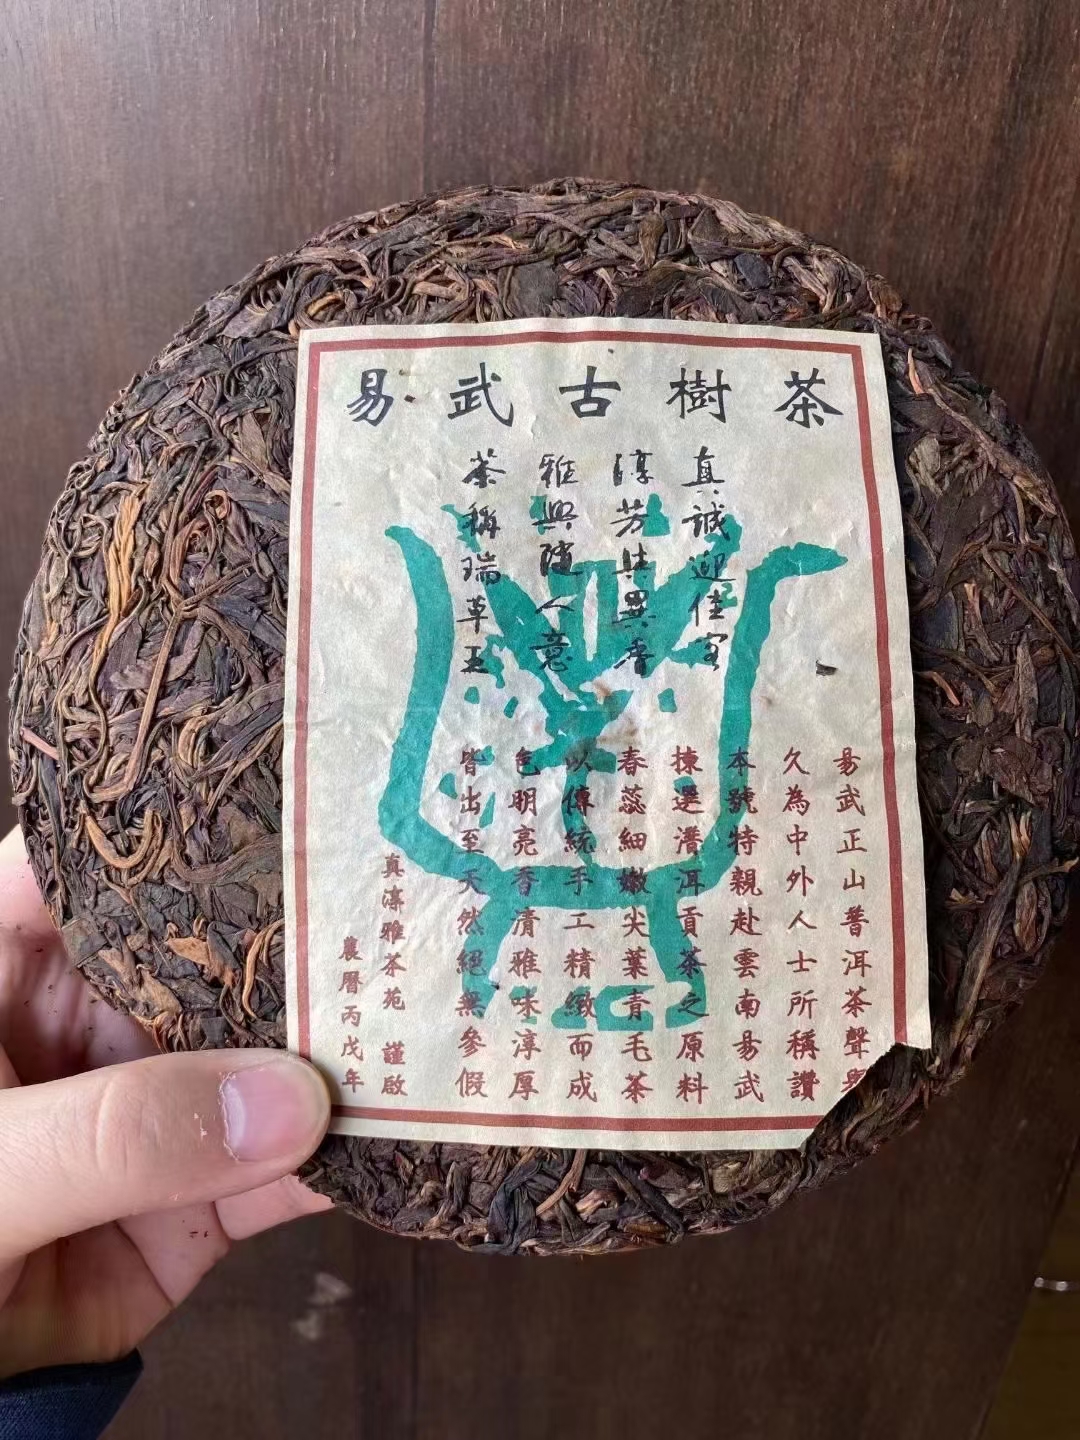 易武古樹茶
真誠迎佳客
淳芳具異香
雅興隨人意
茶稱瑞草王
易武正山普洱茶聲譽
久為中外人士所稱讚
本號特親赴雲南易武
揀選潽洱貢茶之原料
春蕊細嫩尖葉青毛茶
以傳統手工精緻而成
色明亮香清雅味淳厚
皆出至天然絕無參假
真淳雅茶苑 謹啟
農曆丙戊年